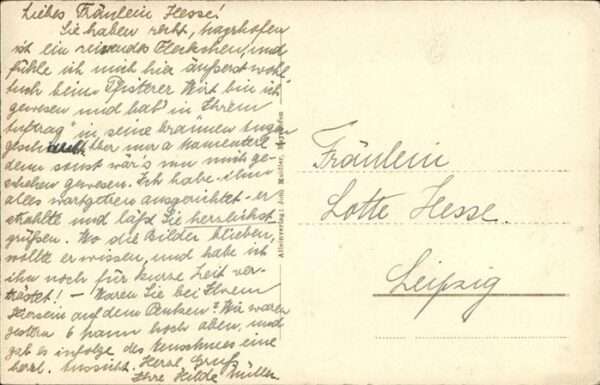 Liebes Fräulein Hesse!
Sie haben recht, Mayrhofen
ist ein reizendes Fleckchen, und
fühle ich mich hier äußerst wohl
Auch beim Pfisterer Wirt bin ich
gewesen und hab' in Ihrem
"Auftrag" in seine braunen Augen
geschaut aber nur a Momenterl
denn sonst wär's um mich ge-
schehen gewesen. Ich habe ihm
alles wortgetreu ausgerichtet - er
strahlte und läßt Sie herzlichst
grüßen. Wo die Bilder blieben,
wollte er wissen, und habe ich
ihn noch für kurze Zeit ver-
tröstet! - Waren Sie bei Ihrem
Hiersein auf dem Penken? Wir waren
gestern 6 Mann hoch oben, und
gab es infolge des Neuschnees eine
herrl. Aussicht. Herzl. Gruß
Ihre Hilde Müller.
Alleinverlag: Mayrhofen
Fräulein
Lotte Hesse.
Leipzig